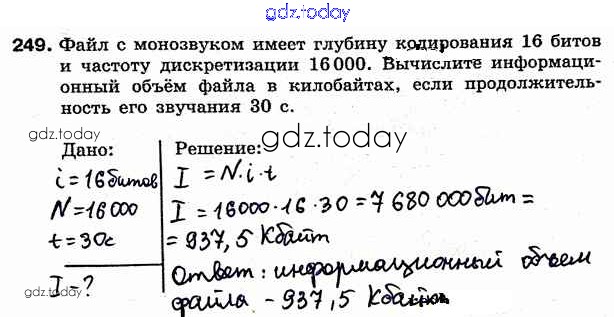 gdz.today
249. Файл с монозвуком имеет глубину кодирования 16 битов
и частоту дискретизации 16 000. Вычислите информаци-
онный объём файла в килобайтах, если продолжитель-
ность его звучания 30 с.
gdz.today
gdz.today
Дано: Решение:
i = 16 битов I = N·i·t
N = 16000 I = 16000·16·30 = 7 680 000 бит =
t = 30с = 937,5 Кбайт
I = ? Ответ: информационный объем
gdz.today
файла - 937,5 Кбайт
gdz.today